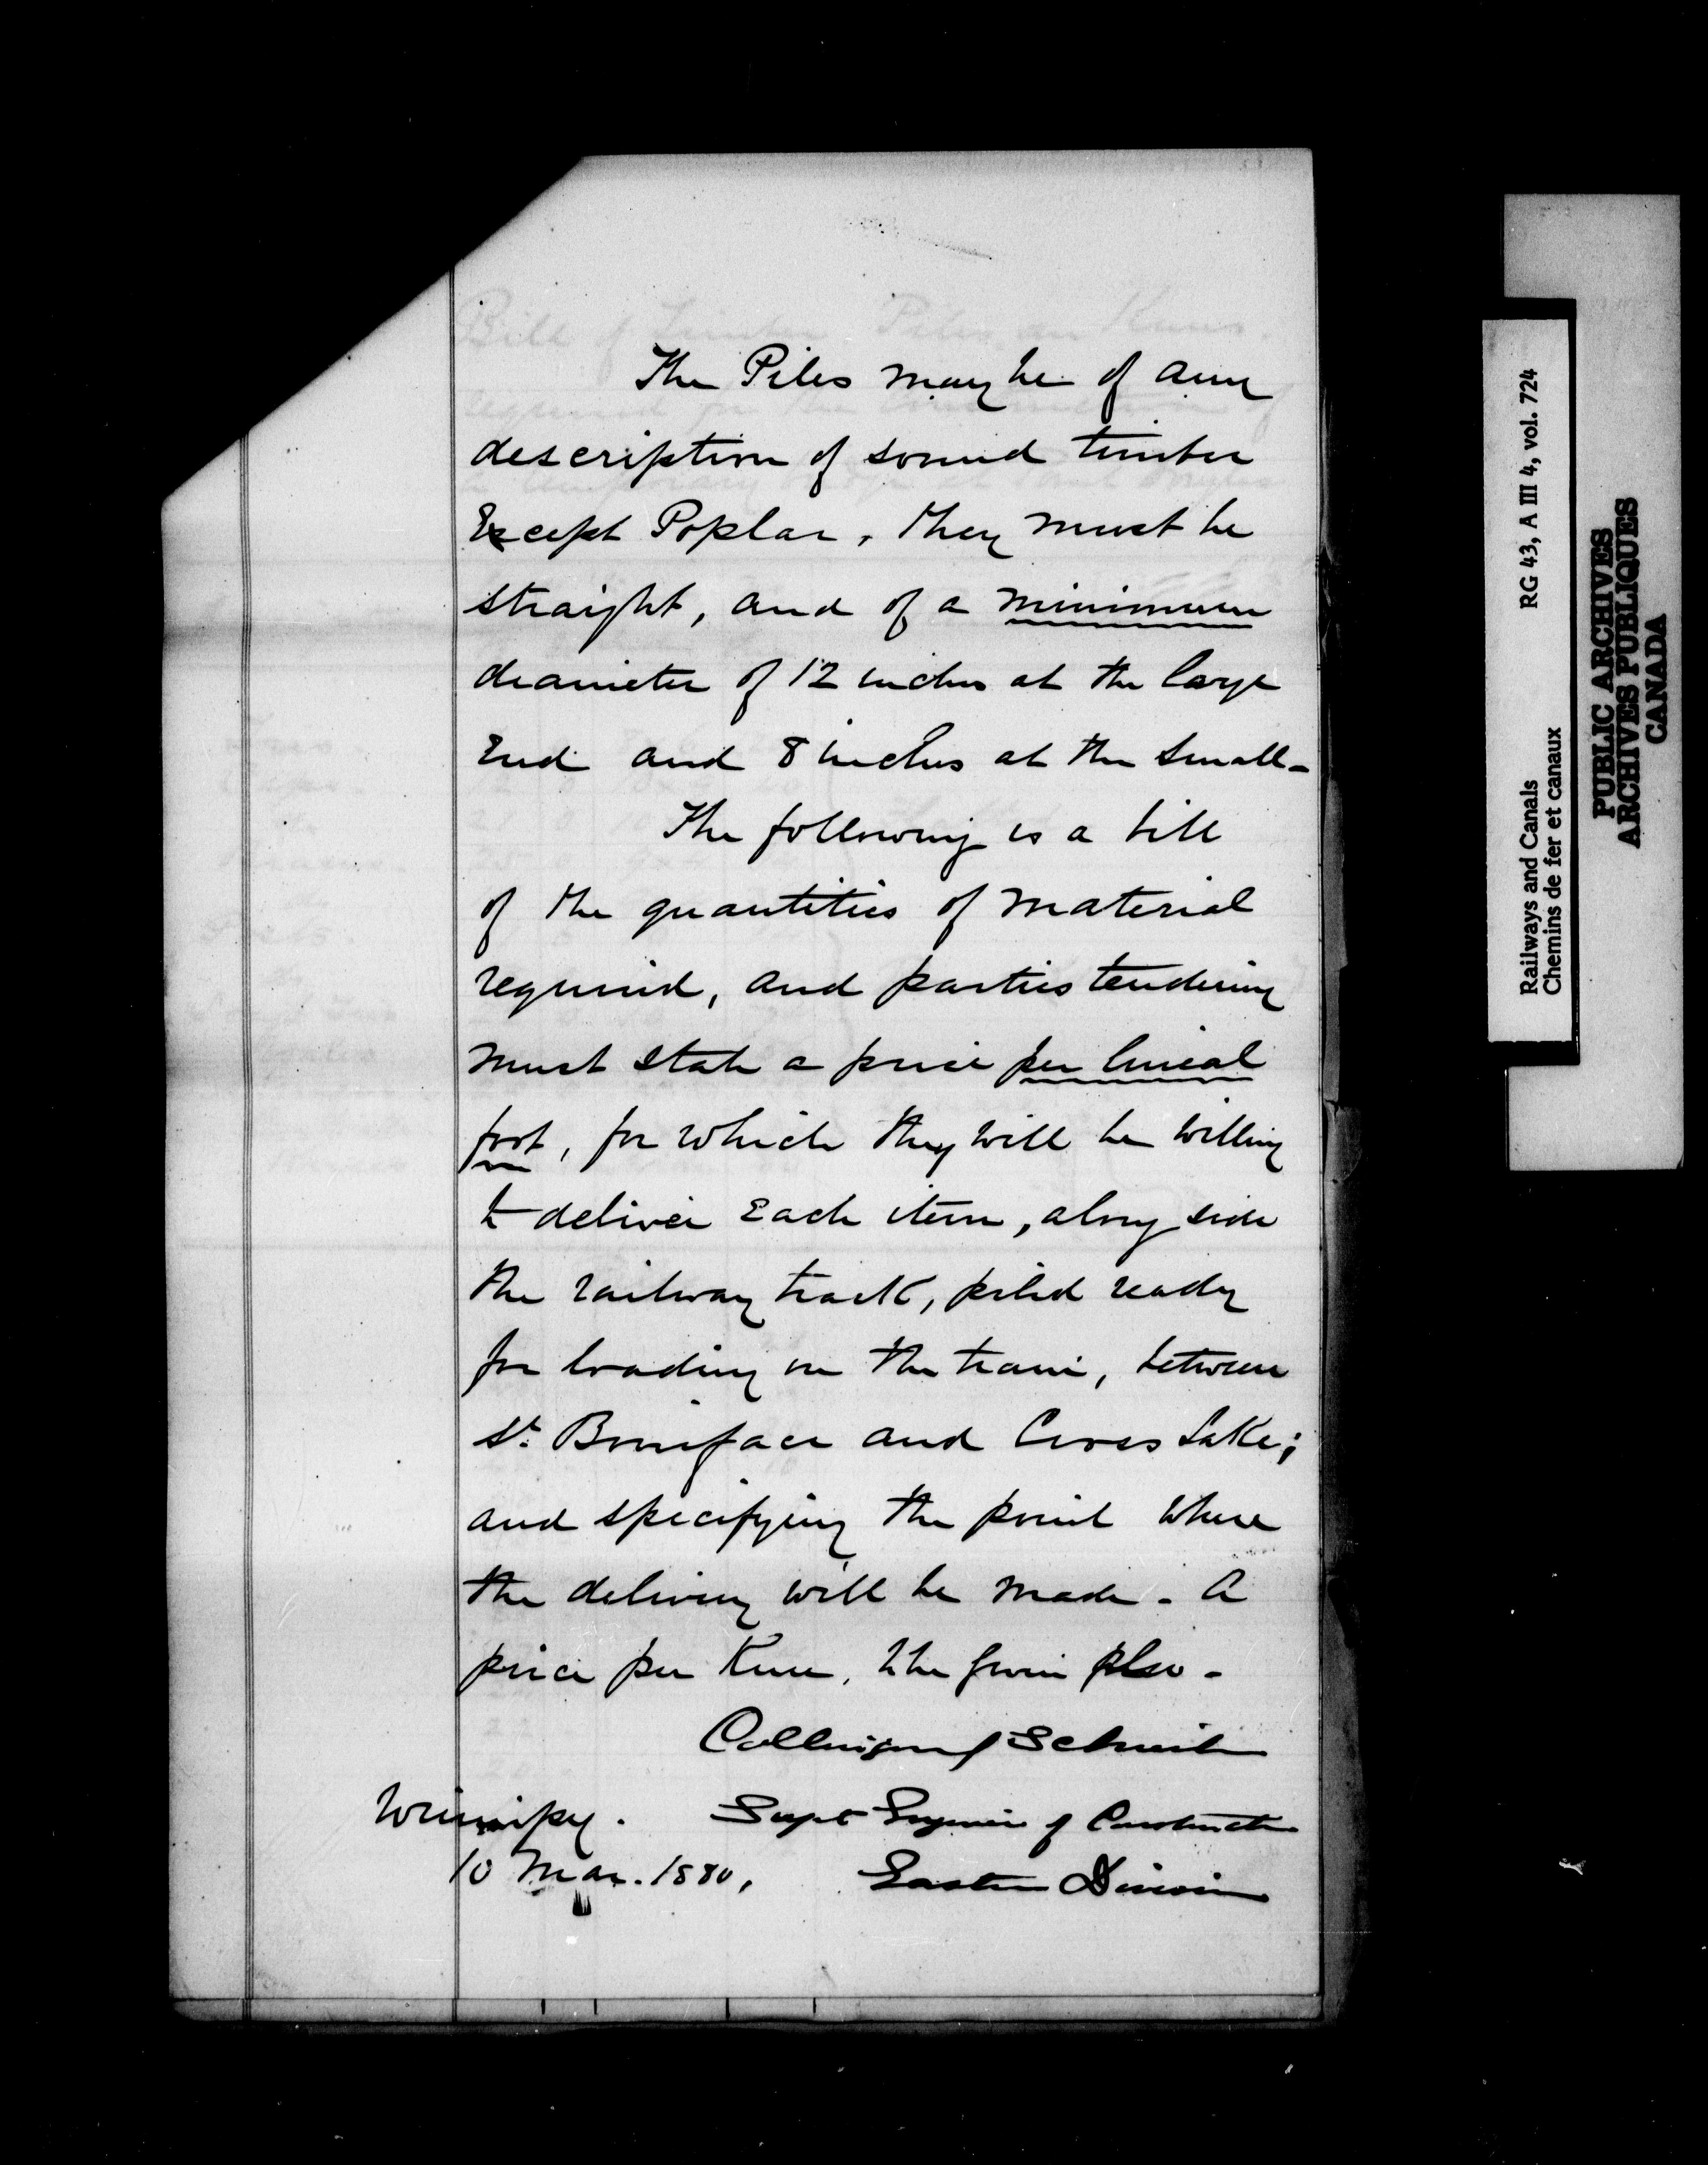 The Piles may be of any
description of sound timber
Except Poplar, they must be
straight, and of a minimum
diameter of 12 inches at the large
End and 8 inches at the small-
The following is a bill
of the quantities of material
required, and parties tendering
must state a price per lineal
foot, for which they will be willing
to deliver Each item, along side
the railway track, piled ready
for loading on the train, between
St. Boniface and Cross Lake;
and specifying the point where
the delivery will be made - A
price per Knee, to be given also -
Collingwood Schreiber
Winnipeg. Supt Engineer of Construction
10 Mar. 1880, Eastern Division
Railways and Canals RG 43, A III 4, vol. 724
Chemins de fer et canaux
PUBLIC ARCHIVES
ARCHIVES PUBLIQUES
CANADA